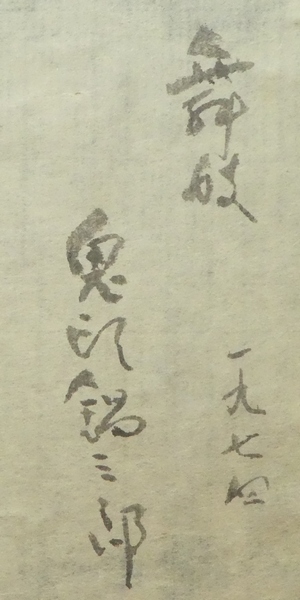 舞妓
一九七四
鬼頭鍋三郎